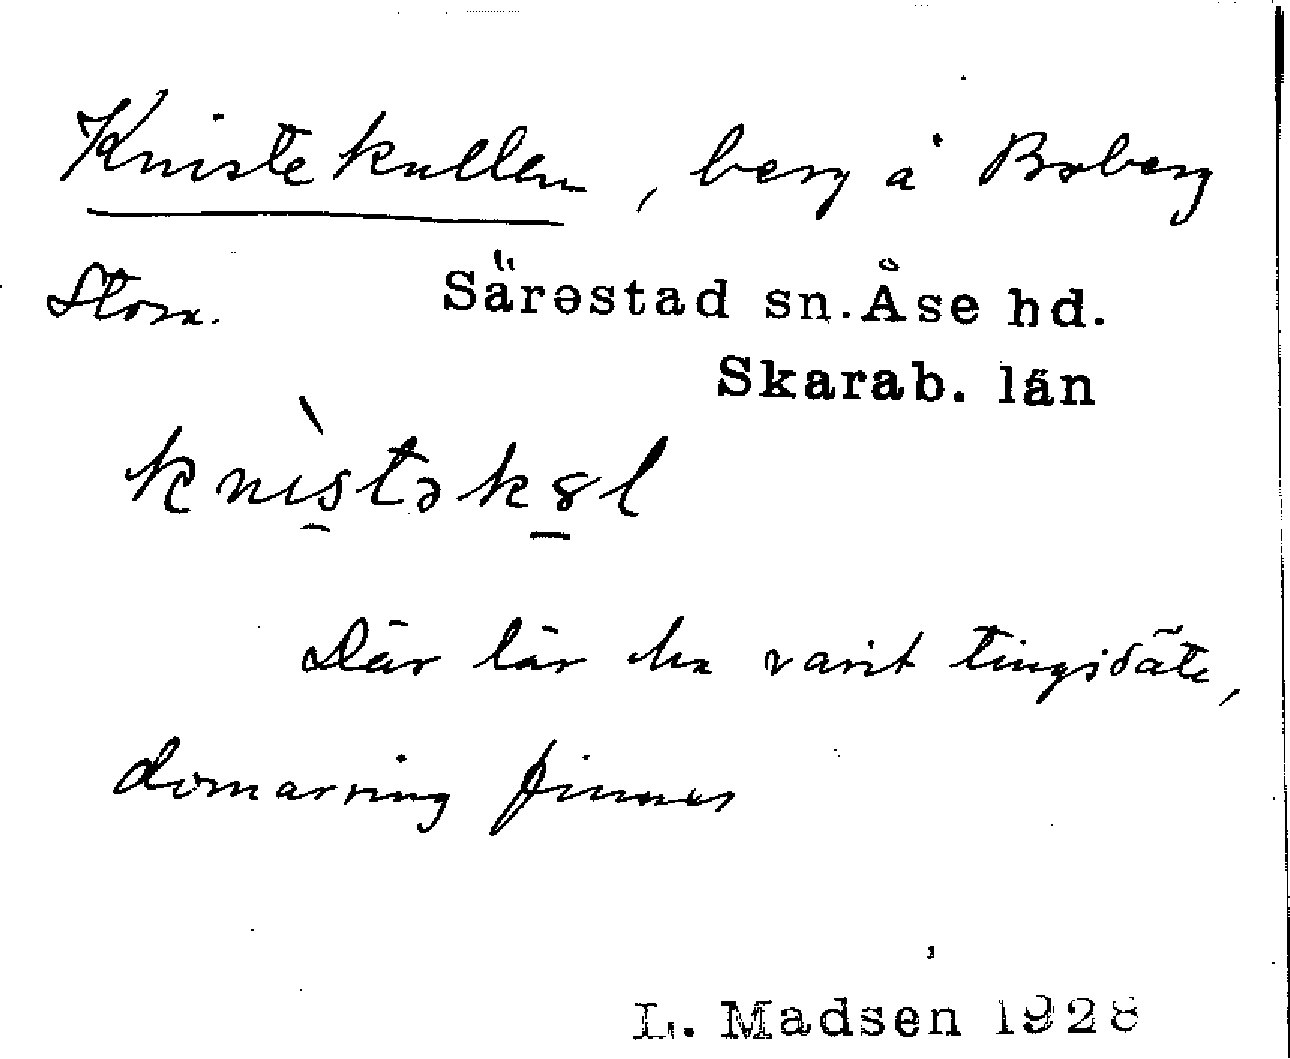 Knistekullen, berg å Boberg
Stora. Särestad sn. Åse hd.
Skarab. län
knìstəkȣl
Där lär ha varit tingsäte,
domarring finnes
L. Madsen 1928